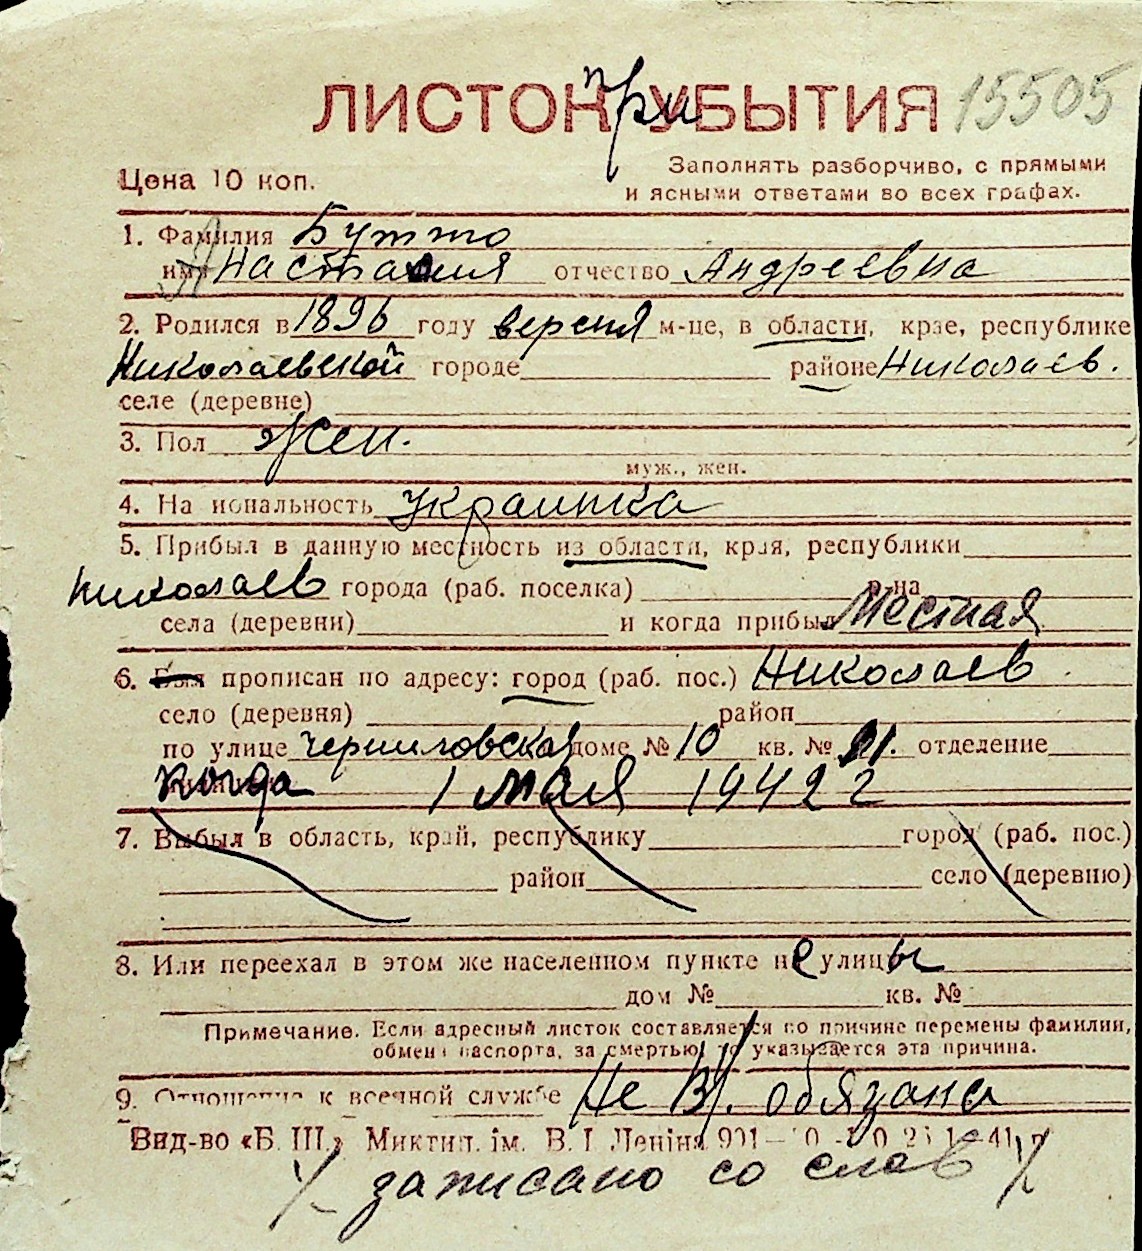 ЛИСТОК при УБЫТИЯ 15505
Цена 10 коп.
Заполнять разборчиво, с прямыми
и ясными ответами во всех графах.
1. Фамилия Бутто
имя Настасия отчество Андреевна
2. Родился в 1896 году версня м-це, в области, крае, республике
Николаевской городе районе Николаев.
селе (деревне)
3. Пол Жен.
муж., жен.
4. На иональность Украинка
5. Прибыл в данную местность из области, края, республики
Николаев города (раб. поселка) р-на
села (деревни) и когда прибыл Местная
6. Был прописан по адресу: город (раб. пос.) Николаев
село (деревня) район
по улице Черниговская доме № 10 кв. № 21. отделение
когда 1 мая 1942 г
7. Выбыл в область, край, республику город (раб. пос.)
район село (деревню)
8. Или переехал в этом же населенном пункте не улицы
дом № кв. №
Примечание. Если адресный листок составляется по причине перемены фамилии,
обмена паспорта, за смертью, то указывается эта причина.
9. Отношение к военной службе Не В/ обязана
Вид-во «Б. Ш.» Миктип. ім. В. І Леніна
записано со слов